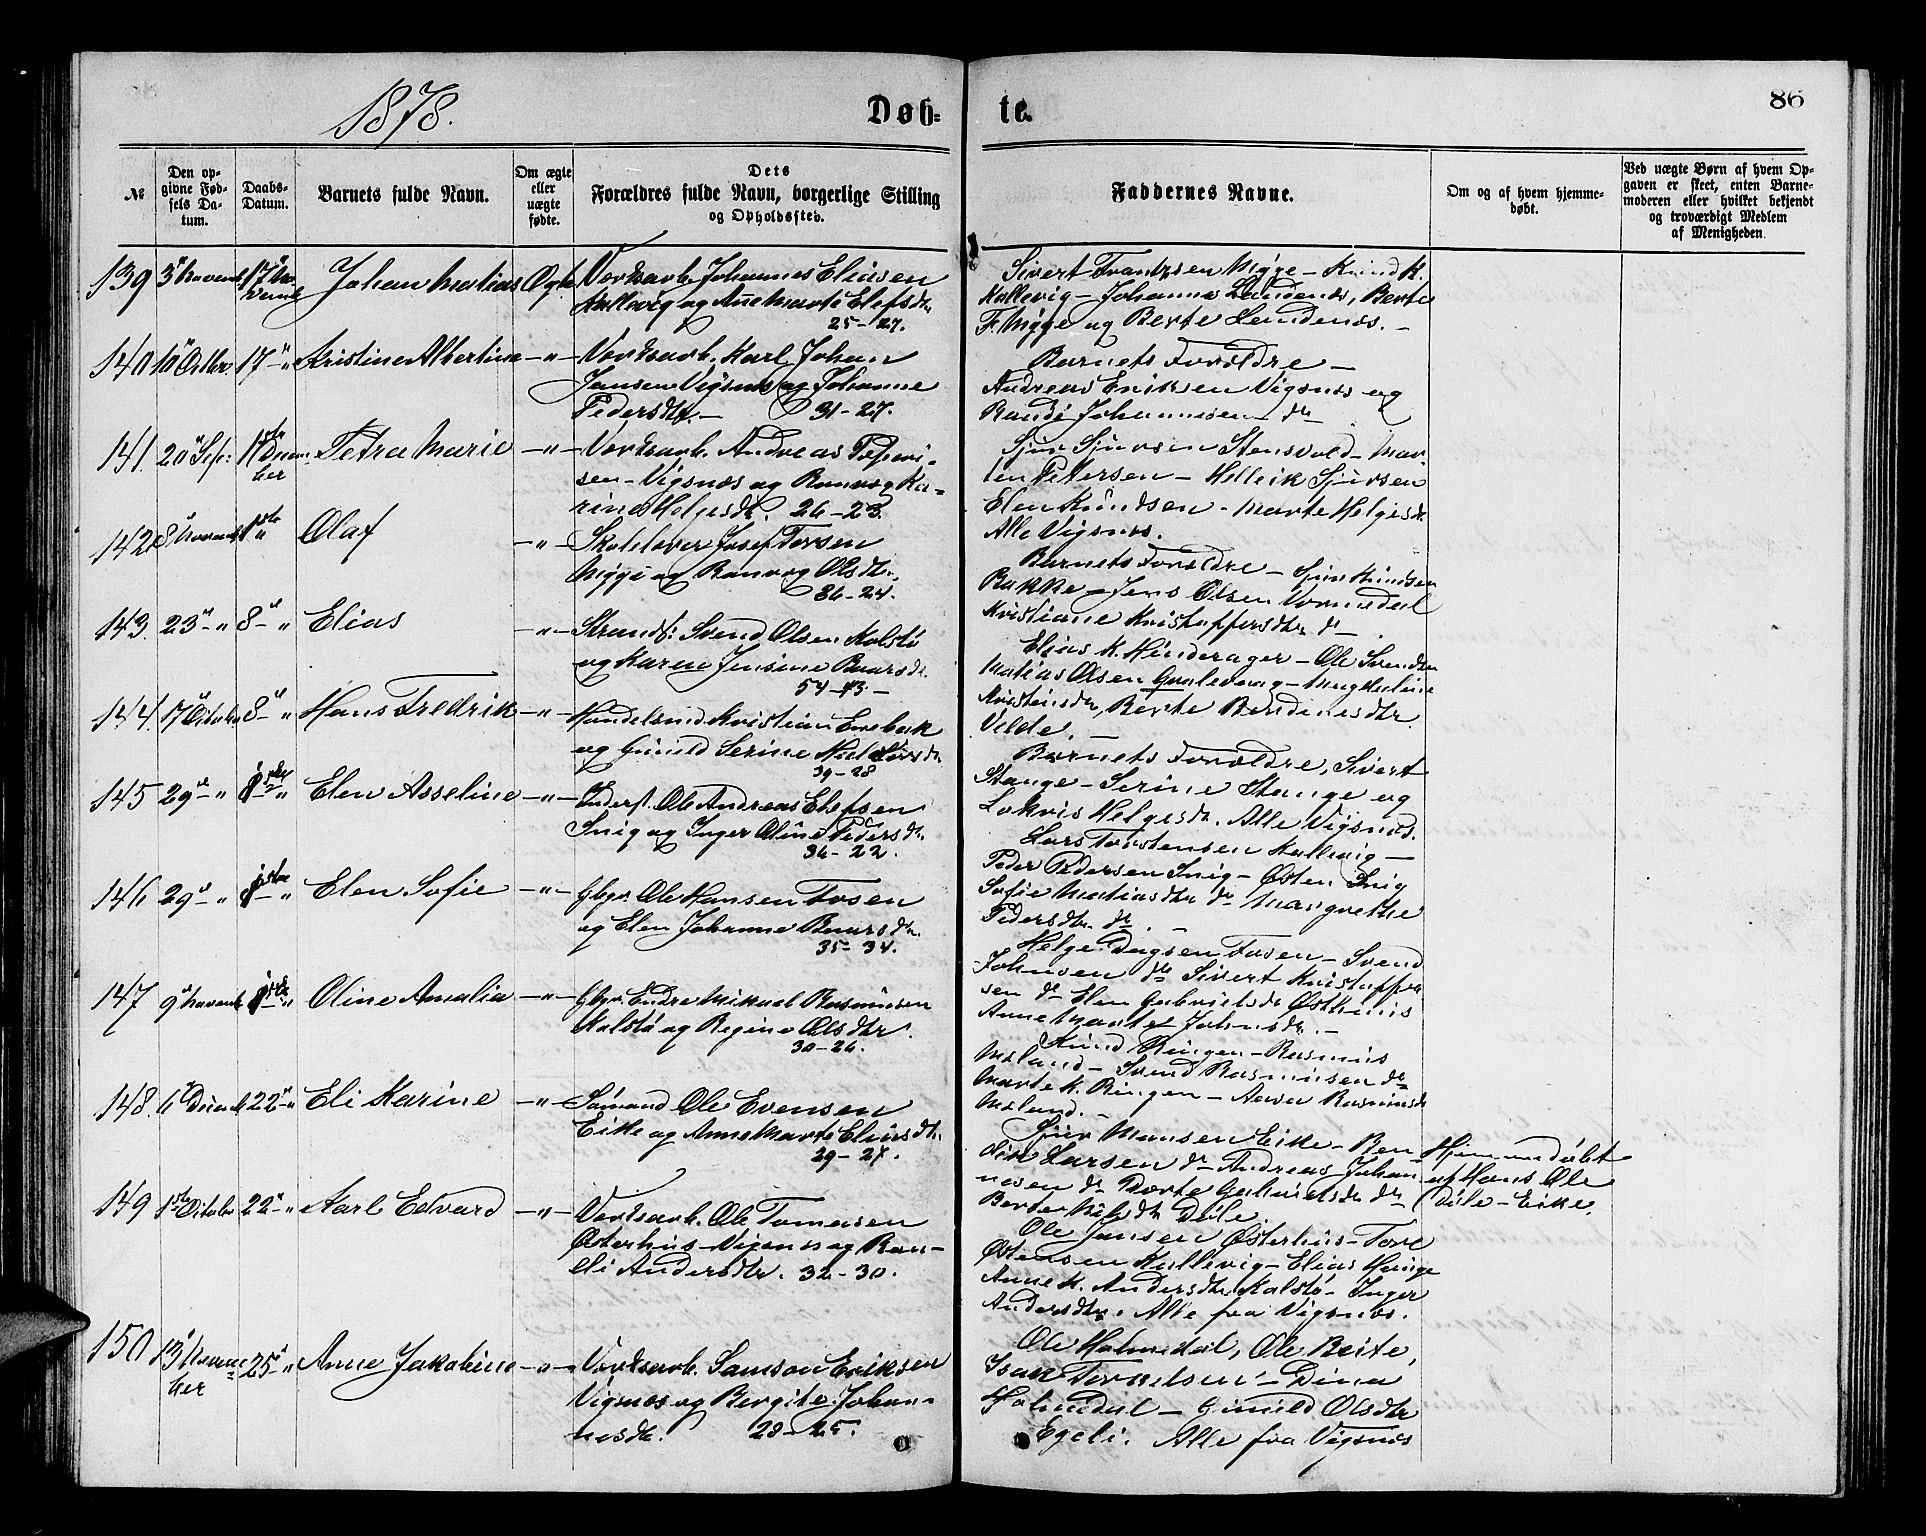 1878.
Døb=
te.
86
№
Den op-
givne Fød-
sels Da-
tum.
Daabs-
Datum.
Barnets fulde Navn.
Om ægte
eller
uægte
fødte.
Dets
Forældres fulde Navn, borgerlige Stilling
og Opholdssted.
Faddernes Navne.
Om og af hvem hjemme-
døbt.
Ved uægte Børn af hvem Op-
gaven er skeet, enten Barne-
moderen eller hvilket bekjendt
og troværdigt Medlem
af Menigheden.
139 3 Novemb 17 Johan Matias Ægte
Verksarb. Johannes Eliasen
og Ane Marte Elefsdtr
25-27.
Sivert Frantzsen Mygge - Knud K.
Kallevig - Johanne Lundenes, Berte
F. Mygge og Berte Lundenes. -
140 10 Octbr. 17 - " Kristine Albertine - " -
Verksarb. Karl Johan
Jansen Vigsnes og Johanne
Pedersdtr. - 31-27.
Barnets Forældre -
Andreas Eriksen Vigsnes og
Johannesen do
141. 20 Sep: 1ste Decem
ber Petra Marie - " -
Verksarb. Andreas
sen - Vigsnes og Ranveg Ka-
rine Helgesdtr. 26-23.
Sjur Sjursen Stensvold - Mar-
ten Pettersen - Hellek Sjursen
Elen Knudsen - Marte Helgesdtr
Alle Vigsnes.
142 8 Novemb 1ste " Olaf - " -
Skolelærer Josef Torsen
Mygge og Ranveg Olsdtr.
36-24.
Barnets Forældre - Sjur Knudsen
Bakke - Jens Olsen Vormedal
Kristiane Kristoffersdtr do -
143. 23 - " 8 - " Elias - " -
Strands: Svend Olsen Kalstø
og Karen Jensine Baarsdtr.
54-43 -
Elias K. Hinderager - Ole Svendsen
Matias Olsen - Magdaline
Kristensdtr, Berte Bendinesdtr
Velde. -
144. 17 October 8 - " Hans Fredrik - " -
Handelsmd Kristian Enebak
og Gunild Serine
39-28
Barnets Forældre, Sivert
Stange - Serine Stange og
Helgesdtr. Alle Vigsnes.
145 29 - " " Elen Asseline - " -
Inderst. Ole Andreas Elefsen
Snig og Inger Oline Pedersdtr.
36-22.
Lars Torstensen Kallevig -
Peder Pedersen Snig - Østen Snig
Sofie Matiasdtr do Margrethe
Pedersdtr do. -
146 29 - " " Elen Sofie - " -
Gbgr. Ole Hansen Fosen
og Elen Johanne Baarsdtr.
35-34.
Helge Dagsen Fosen - Svend
Johnsen do Sivert Kristoffer
sen do Elen Gabrielsdtr Østhus
Anne Marte Johnsdtr. -
147 9 Novemb " Oline Amalia - " -
Gbgr. Endre Mikael Rasmusen
Kalstø og Regine Olsdtr.
30-26.
Knud Ringen - Rasmus
Meland - Svend Rasmusen do
Marte K. Ringen - Rasmusdtr
Meland. -
148. 6 Decemb 22 - " Eli Karine - " -
Sømand Ole Evensen
Eike og Anne Marte Eliasdtr.
29-27.
Sjur Monsen Eike - Ben-
dix Larsen do Andreas Johan
nesen do Dorte Gabrielsdtr do
Berte Dale
Hjemmedøbt
af Hans Ole
Dale - Eike.
149 1ste October 22 - " Karl Edvard - " -
Verksarb. Ole Tomasen
Østerhus - Vigsnes og Ran-
di Andersdtr. 32-30.
Ole Jansen Østerhus - Tore
Østensen Kallevig - Elias Hauge
Anne K. Andersdtr Kalstø - Inger
Andersdtr. Alle fra Vigsnes.
150 13 Novem
ber 25 - " Anne Jakobine - " -
Verksarb. Samson Eriksen
Vigsnes og Bergite Johan-
nesdtr. 29-25.
Ole Holmedal, Ole Beite,
Isak Torkelsen - Dina
Holmedal - Gunild Olsdtr
Egeli. Alle fra Vigsnes